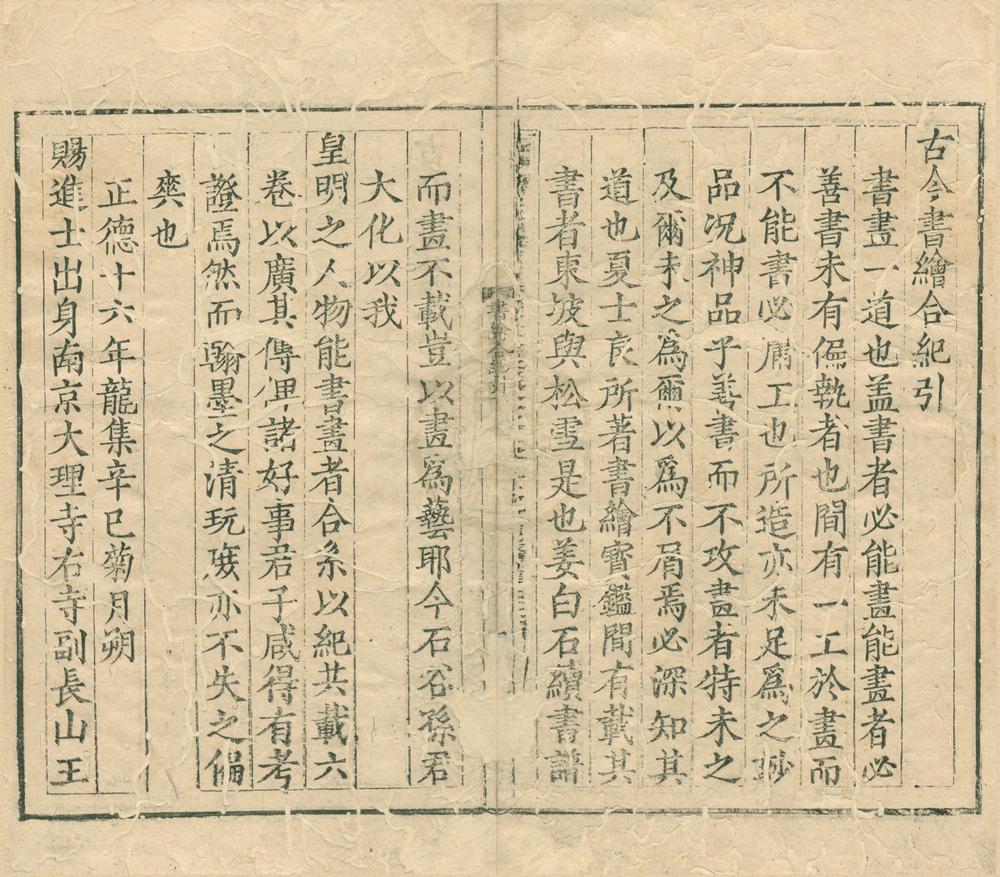 古今書繪合紀引
書畫一道也盖書者必能畫能畫者必
善書未有偏執者也間有一工於畫而
不能書必庸工也所造亦未足爲之玅
品况神品乎善書而不攻畫者特未之
及爾未之爲爾以爲不屑焉必深知其
道也夏士良所著書繪寶鑑間有載其
書者東坡與松雪是也姜白石續書譜
書繪合紀引
而畫不載豈以畫爲藝耶今石谷孫君
大化以我
皇明之人物能書畫者合糸以紀共載六
卷以廣其傳俾諸好事君子咸得有考
證焉然而翰墨之清玩庻亦不失之偏
獘也
正德十六年龍集辛巳菊月朔
賜進士出身南京大理寺右寺副長山王